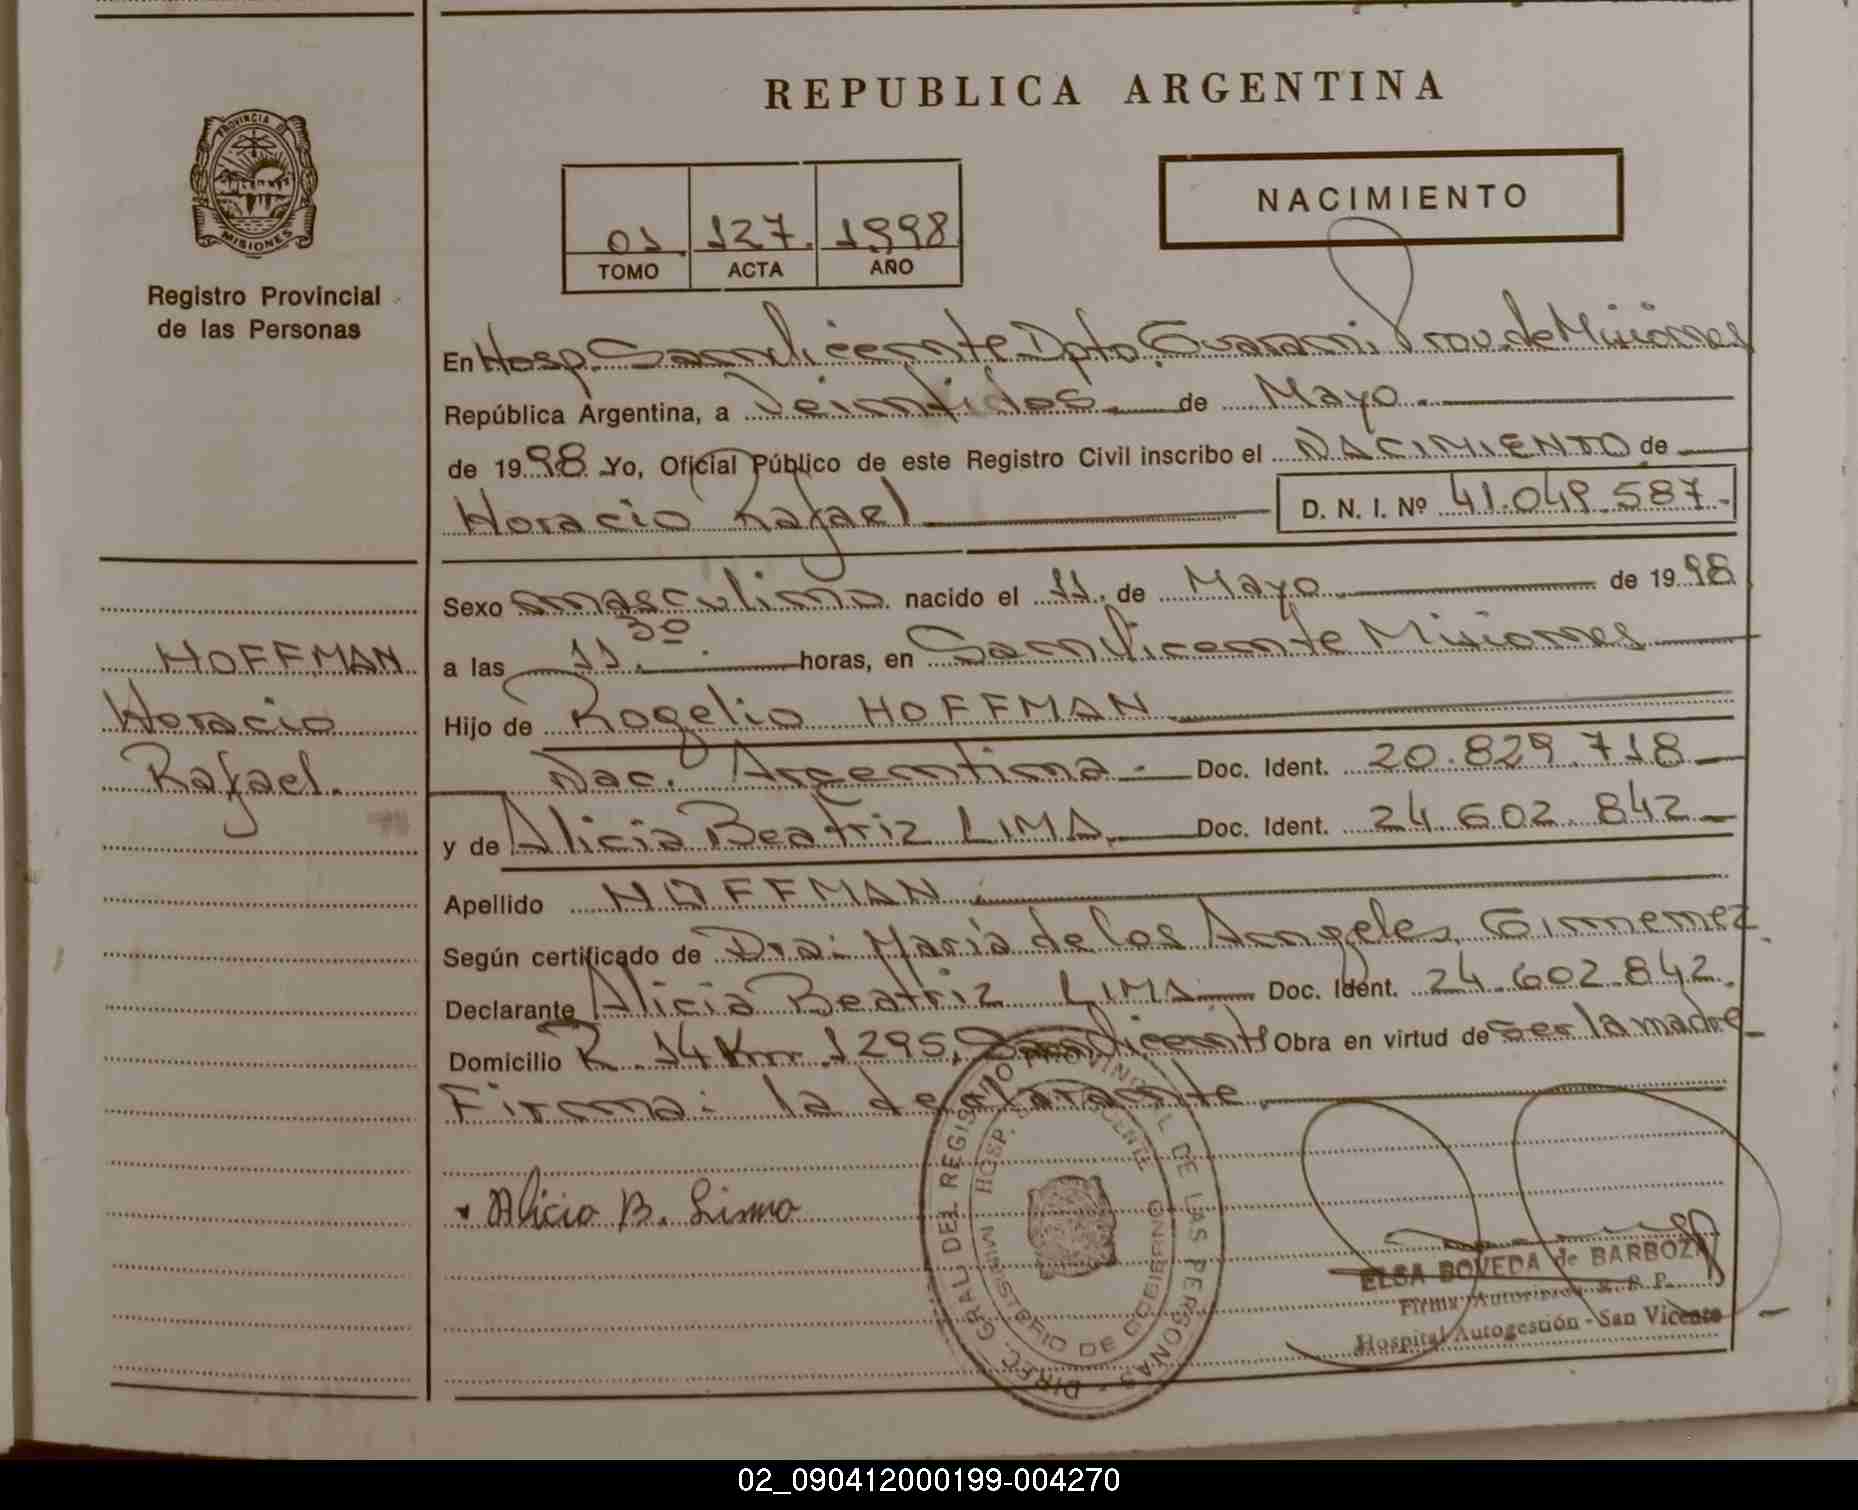 REPUBLICA ARGENTINA
PROVINCIA DE
MISIONES
Registro Provincial
de las Personas
01 127. 1998
TOMO ACTA AÑO
NACIMIENTO
En Hosp. San Vicente Dpto. Guarani. Prov. de Misiones
República Argentina, a Veintidos de Mayo.
de 1998. Yo, Oficial Público de este Registro Civil inscribo el NACIMIENTO de
Horacio Rafael D. N. I. Nº 41.049.587.-
Sexo masculino. nacido el 11. de Mayo de 1998
a las 11.30 horas, en San Vicente Misiones
Hijo de Rogelio HOFFMAN
Nac. Argentina.- Doc. Ident. 20.829.718
y de Alicia Beatriz LIMA Doc. Ident. 24.602.842
Apellido HOFFMAN.
Según certificado de Dra: Maria de los Angeles Gimenez.
Declarante Alicia Beatriz LIMA Doc. Ident. 24.602.842.
Domicilio R. 14 Km. 1295, San Vicente Obra en virtud de ser la madre
Firma: la declarante.
HOFFMAN
Horacio
Rafael.
Alicia B. Lima
DIREC. GRAL. DEL REGISTRO PROVINCIAL DE LAS PERSONAS
HOSP. VICENTE
MINISTERIO DE GOBIERNO
ELSA BOVEDA de BARBOZA
Firma Autorizada R. P. P.
Hospital Autogestión - San Vicente
02_090412000199-004270